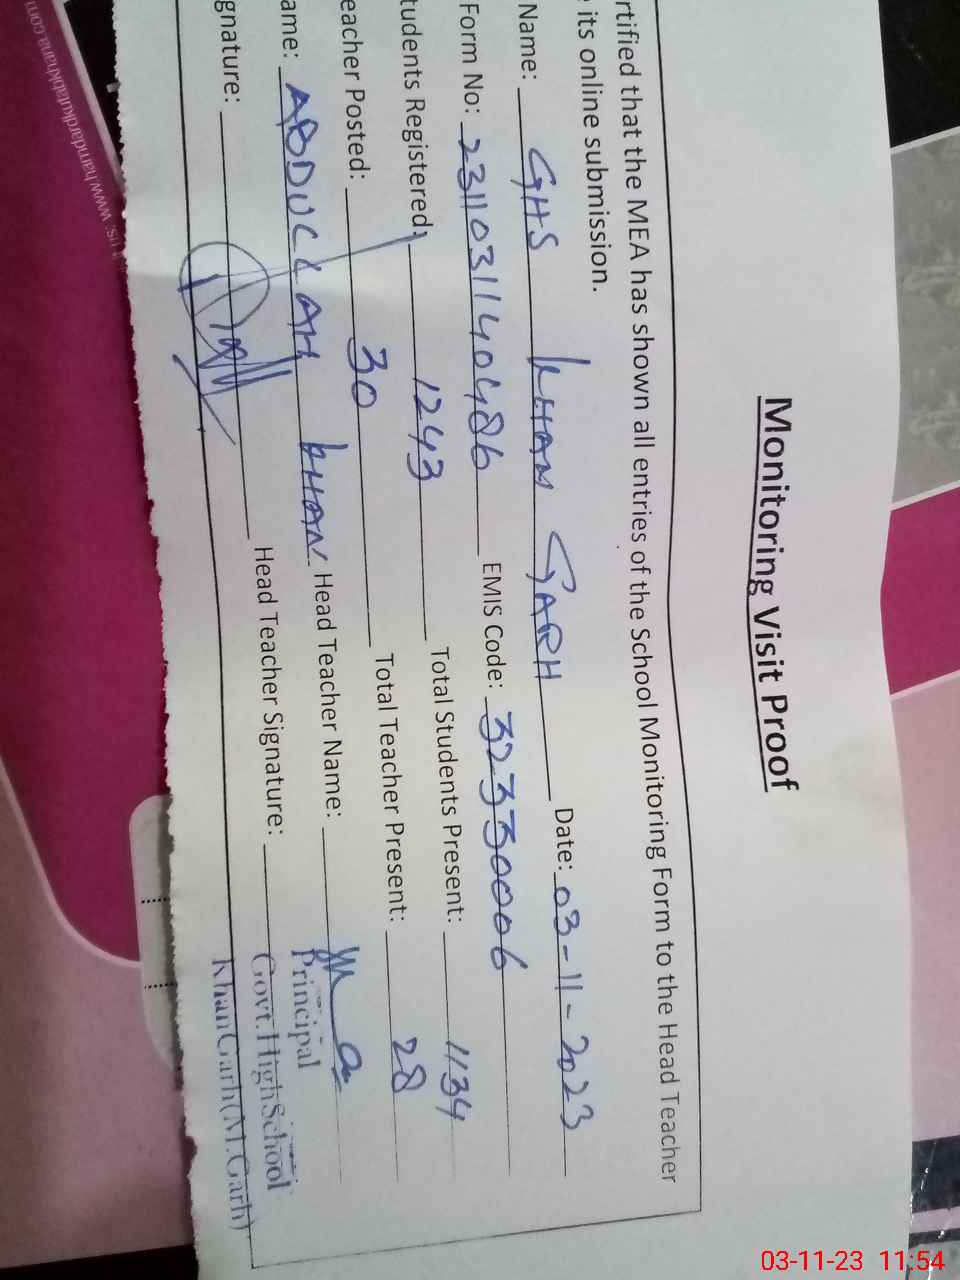 Monitoring Visit Proof
rtified that the MEA has shown all entries of the School Monitoring Form to the Head Teacher
its online submission.
Name: GHS KHAN GARH Date: 03-11-2023
Form No: 2311031140486 EMIS Code: 32330006
tudents Registered: 1243 Total Students Present: 1134
eacher Posted: 30 Total Teacher Present: 28
ame: ABDULLAH KHAN Head Teacher Name:
gnature: Head Teacher Signature:
Principal
Govt. High School
Khan Garh (M.Garh)
www.hamdardkutabkhana.com
03-11-23 11:54